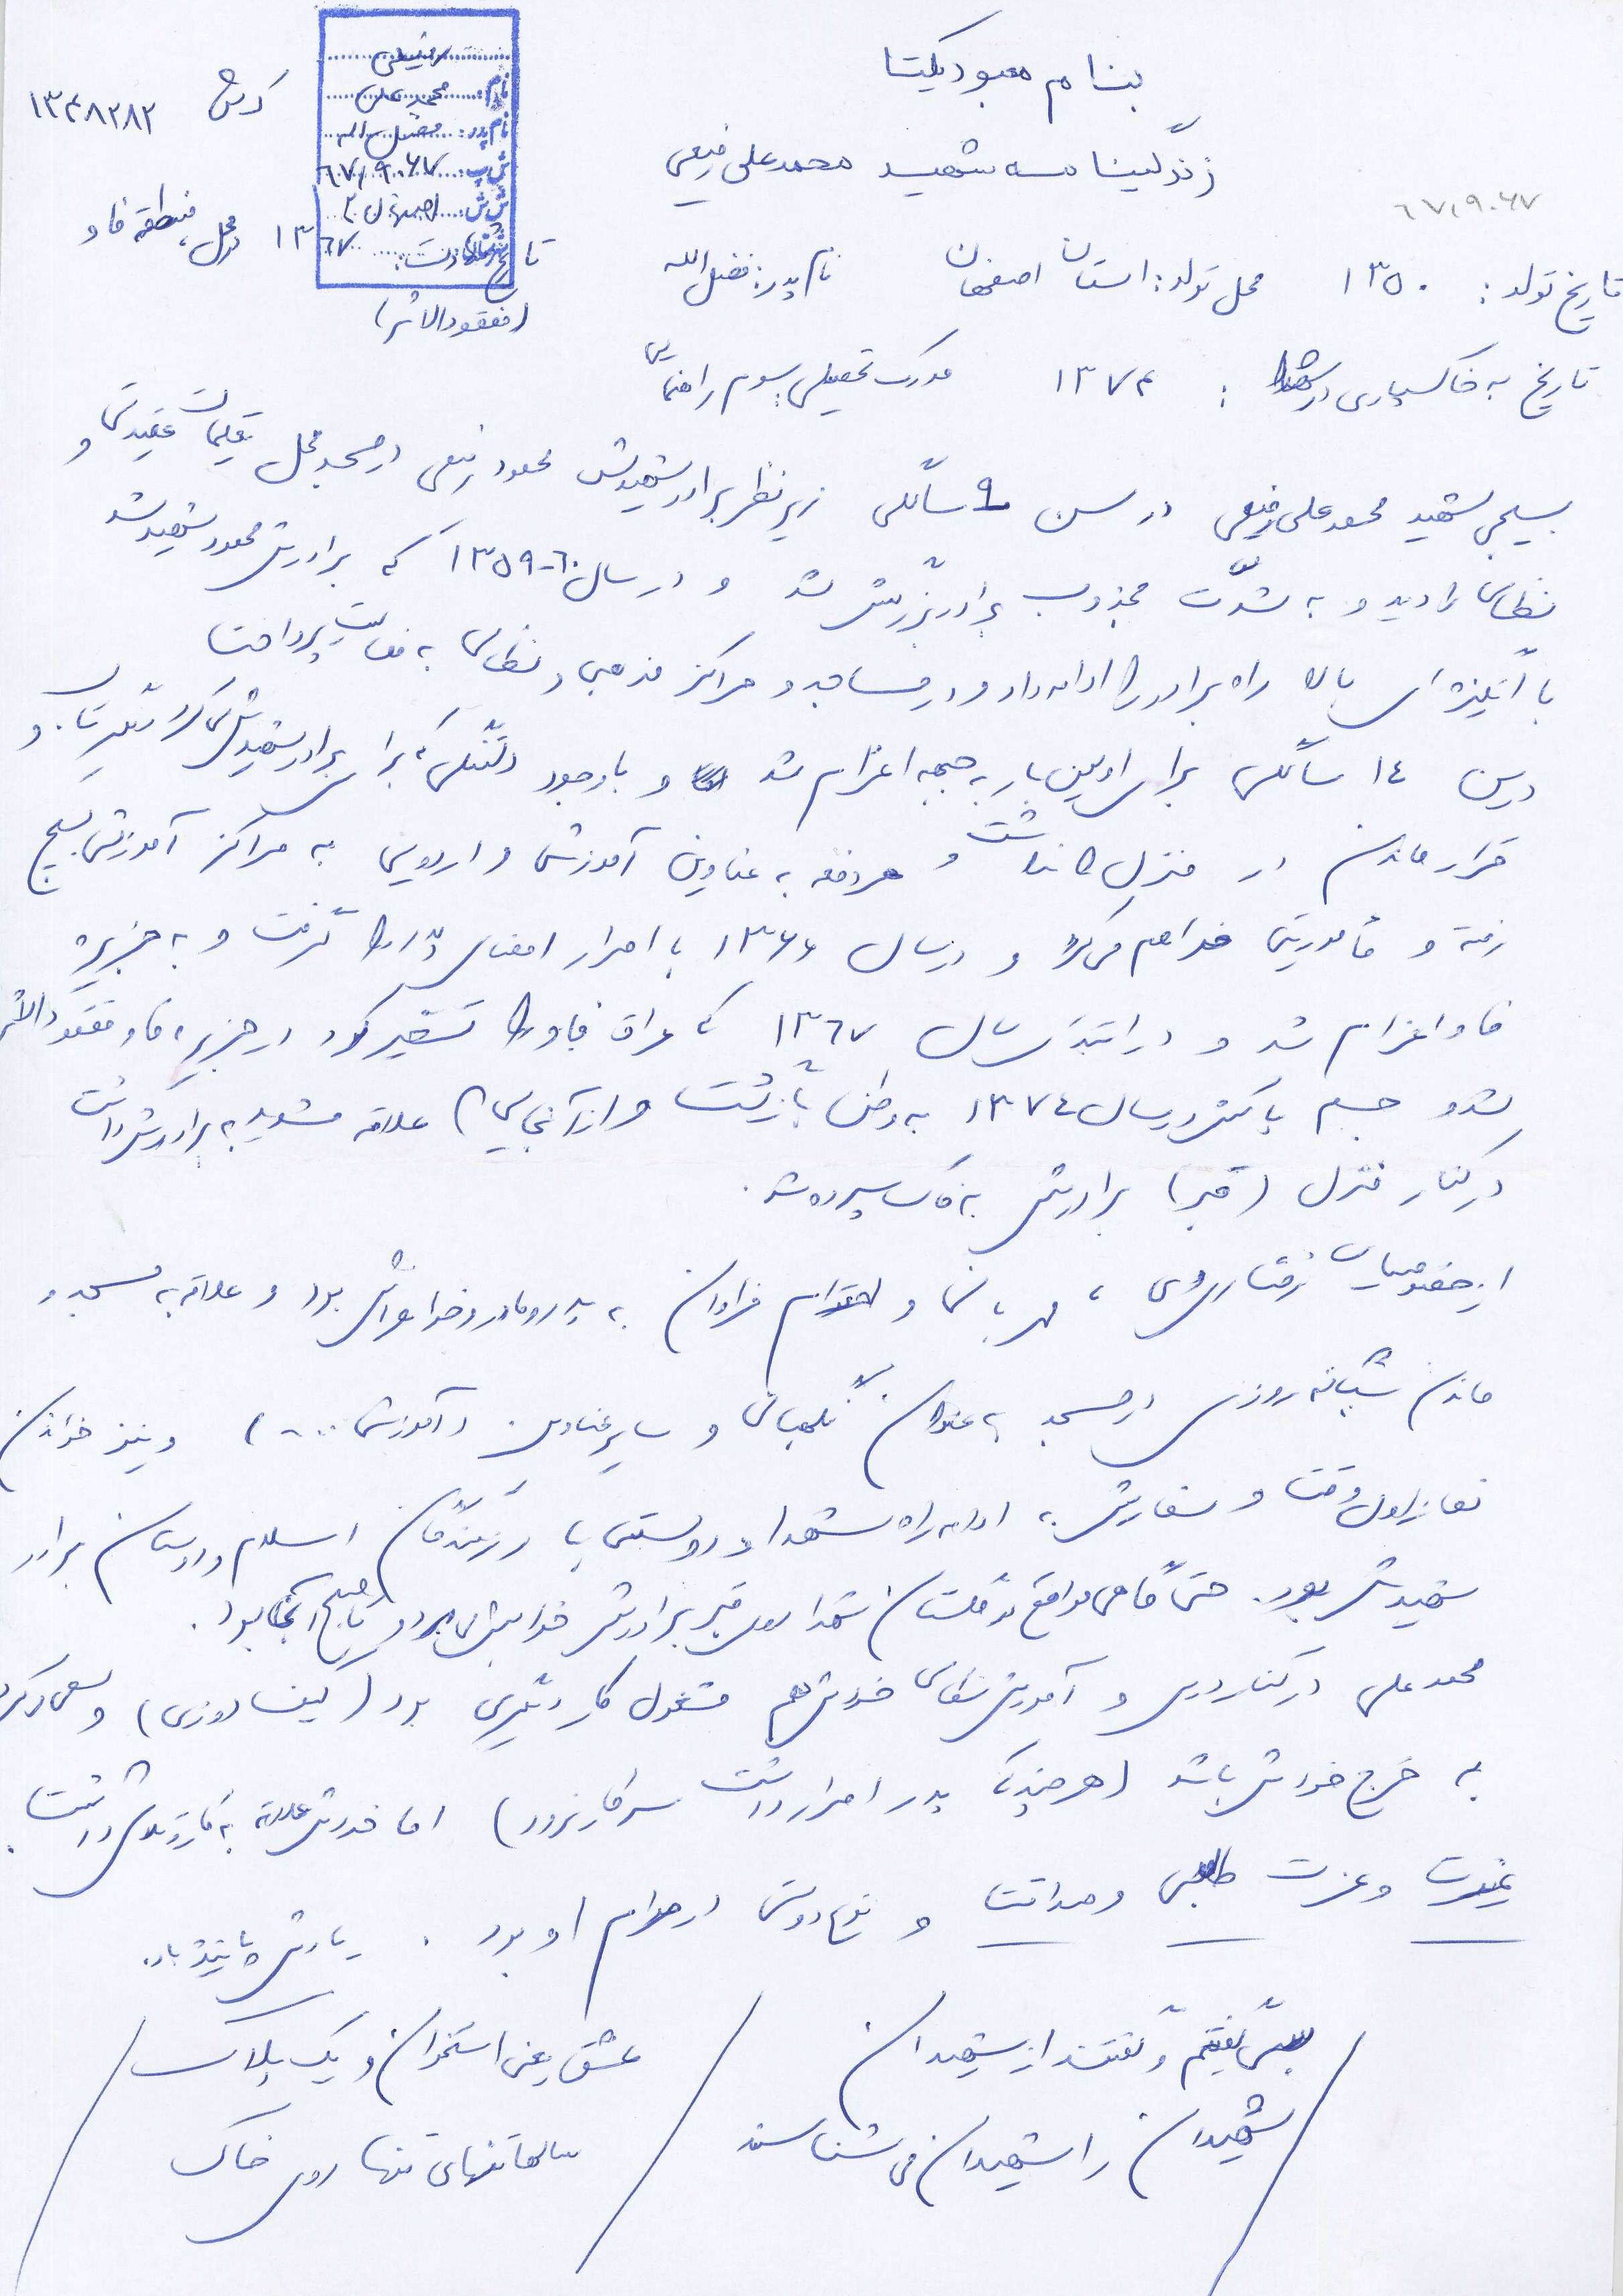 بنام معبود یکتا
زندگینامه شهید محمدعلی رفیعی
رفیعی
نام: محمدعلی
نام پدر: فضل اله
ش پ: ۶۷/۹۰۶۷
ش ش: اصفهان ۲
کد ش ۱۳۴۸۲۸۲
۶۷/۹۰۶۷
تاریخ تولد: ۱۳۵۰ محل تولد: استان اصفهان نام پدر: فضل الله تاریخ شهادت: ۱۳۶۷ در محل، منطقه فاو
(مفقودالاثر)
تاریخ به خاکسپاری در : ۱۳۷۴ مدرک تحصیلی سوم راهنمایی
بسیجی شهید محمدعلی رفیعی در سن ۹ سالگی زیر نظر برادر شهیدش محمود رفیعی در مسجد محل تعلیمات عقیدتی و
نظامی را دید و به شدت مجذوب برادر بزرگش شد و در سال ۶۰-۱۳۵۹ که برادرش محمود شهید شد
با انگیزه ای بالا راه برادر را ادامه داد و در مساجد و مراکز مذهبی و نظامی به فعالیت پرداخت
در سن ۱۴ سالگی برای اولین بار به جبهه اعزام شد و با وجود دلتنگی که برای برادر شهیدش می کرد دیگر تاب و
قرار ماندن در منزل را نداشت و هر دفعه به عناوین آموزش و اردویی به مراکز آموزش بسیج
رفته و مأموریتی فراهم می کرد و در سال ۱۳۶۶ با اصرار امضای پدر را گرفت و به جزیره
فاو اعزام شد و در ابتدای سال ۱۳۶۷ که عراق فاو را تسخیر کرد در جزیره فاو مفقودالاثر
شد و جسم پاکش در سال ۱۳۷۴ به وطن بازگشت و از آنجایی که علاقه شدید به برادرش داشت
در کنار منزل (قبر) برادرش به خاک سپرده شد.
از خصوصیات رفتاری وی، مهربانی و احترام فراوان به پدر و مادر و خواهرانش بود و علاقه به مسجد و
ماندن شبانه روزی در مسجد به عنوان نگهبانی و سایر عناوین (آموزش ...) و نیز خواندن
نماز اول وقت و سفارش به ادامه راه شهدا و دوستی با رزمندگان اسلام و دوستان برادر
شهیدش بود. حتی گاهی مواقع در گلستان شهدا روی قبر برادرش خوابش می برد و تا صبح آنجا بود.
محمدعلی در کنار درس و آموزش نظامی خودش هم مشغول کار دیگری بود (کیف دوزی) و سعی می کرد
به خرج خودش باشد (هر چند که پدر اصرار داشت سر کار نرود) اما خودش علاقه به کار و تلاش داشت.
غیرت و عزت طلبی و صداقت و نوع دوستی در مرام او بود. یادش پاینده باد.
بس که گفتیم و گفتند از شهیدان / عشق یعنی استخوان و یک پلاک
شهیدان را شهیدان می شناسند / سالها تنهای تنها روی خاک